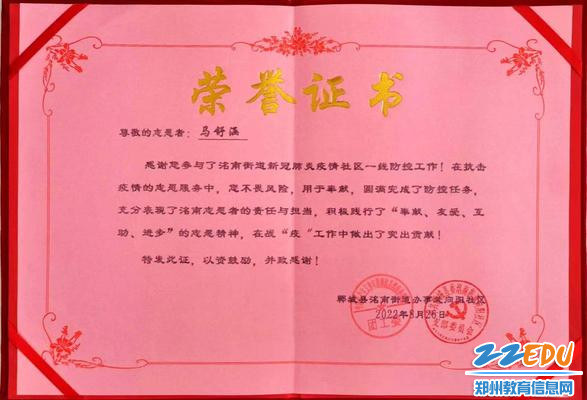 荣誉证书
尊敬的志愿者：马舒涵
感谢您参与了洺南街道新冠肺炎疫情社区一线防控工作！在抗击
疫情的志愿服务中，您不畏风险，用于奉献，圆满完成了防控任务，
充分表现了洺南志愿者的责任与担当，积极践行了“奉献、友爱、互
助、进步”的志愿精神，在战“疫”工作中做出了突出贡献！
特发此证，以资鼓励，并致感谢！
郸城县洺南街道办事处向阳社区
2022年8月26日
团工委
支部委员会
ZZEDU
郑州教育信息网